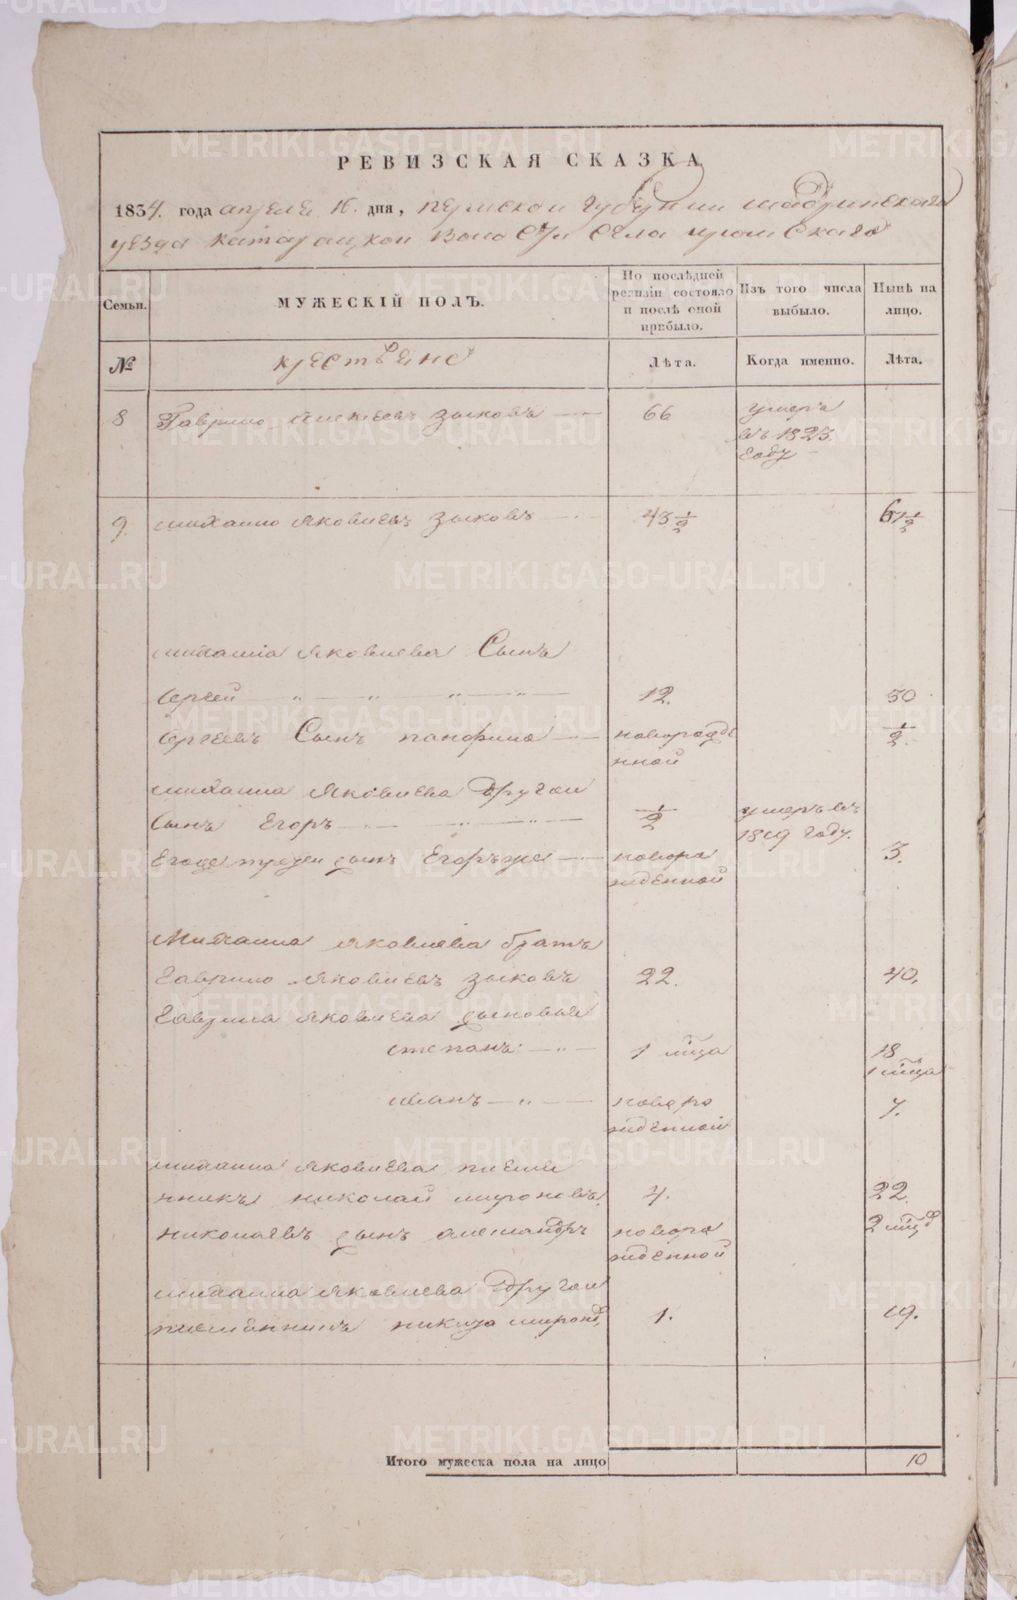 РЕВИЗСКАЯ СКАЗКА
1834. года апреля 16. дня, пермской губернии шадринскаго
уезда катайской волости села
Семьи.
МУЖЕСКІЙ ПОЛЪ.
По послѣдней ревизіи состояло и послѣ оной прибыло.
Изъ того числа выбыло.
Нынѣ на лицо.
№
крестьяне
Лѣта.
Когда именно.
Лѣта.
8 Гаврило Алексѣевъ зыковъ 66 умеръ
въ 1825.
году
9. михаило яковлевъ зыковъ 43 1/2 61 1/2
михаила яковлева Сынъ
сергей 12. 30
сергеевъ Сынъ панфило новорожде 1/2.
нной
михаила яковлева Другой
Сынъ Егоръ 1/2 умеръ въ
1819 году.
Егоже третей сынъ Егоръ же новоро 3.
жденной
Михаила яковлева братъ
гаврило яковлевъ зыковъ 22. 40.
гаврила яковлева сыновья
степанъ 1 мца 18
1 мца
иванъ новоро 7.
жденной
михаила яковлева племя
нникъ николай мироновъ 4. 22.
николаевъ сынъ александръ новоро 2 мцов
жденной
михаила яковлева Другой
племянникъ никита миронов, 1. 19.
Итого мужеска пола на лицо 10
METRIKI.GASO-URAL.RU